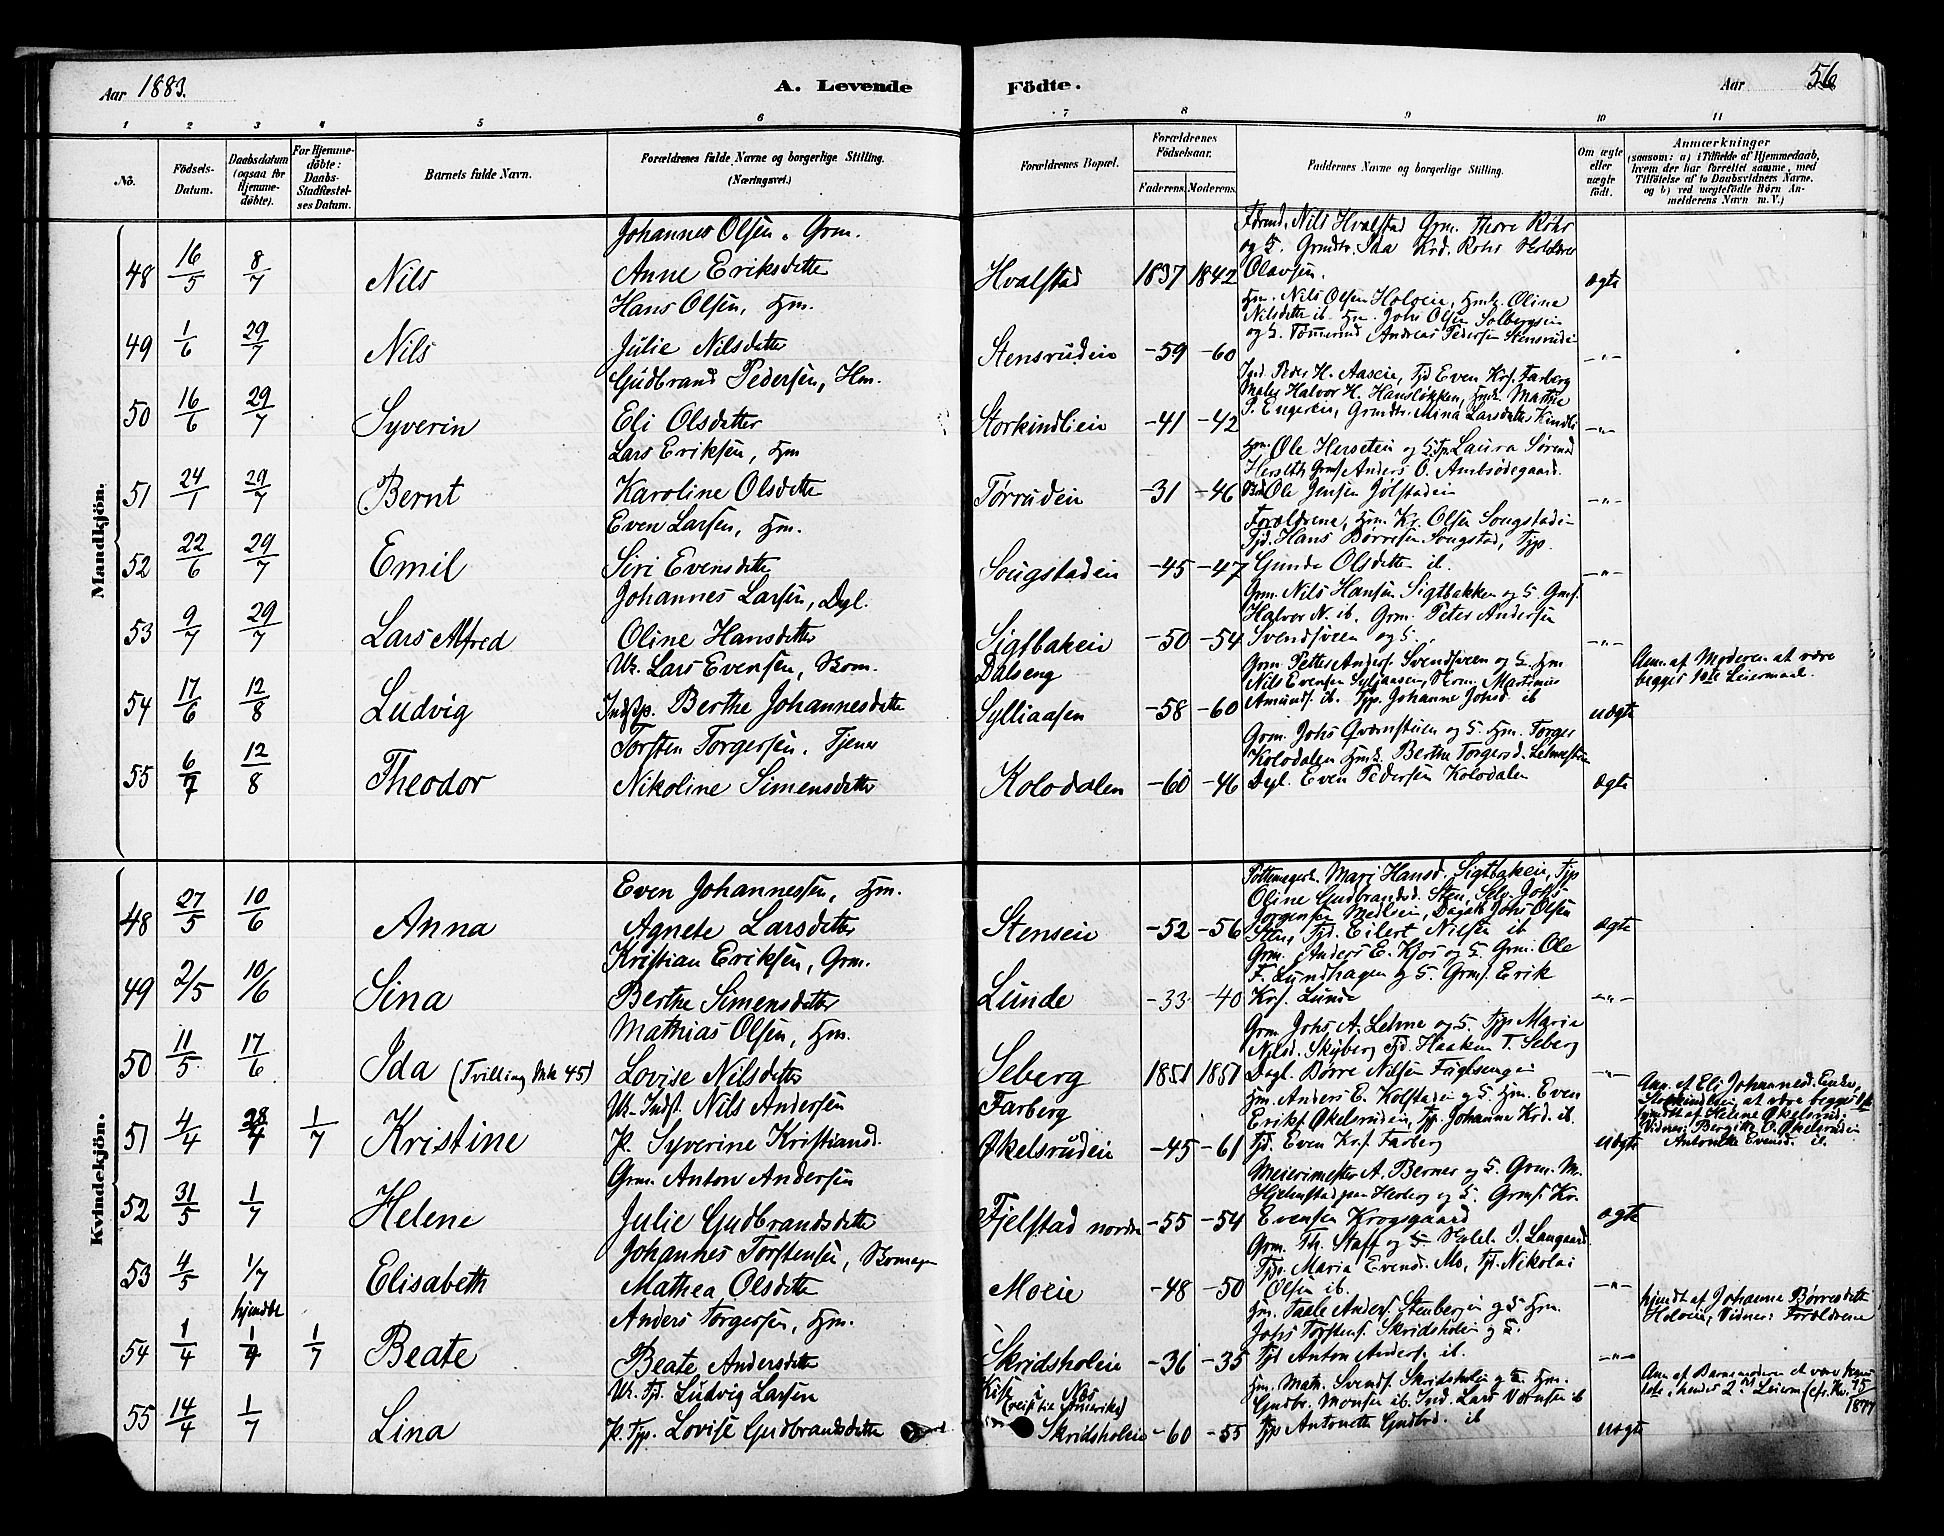 Aar 1883.
A. Levende
Födte.
Aar 56
1 2 3 4 5 6 7 8 9 10 11
No.
Födsels-Datum.
Daabsdatum (ogsaa for Hjemmedöbte).
For Hjemmedöbte: Daabs-Stadfæstelses Datum.
Barnets fulde Navn.
Forældrenes fulde Navne og borgerlige Stilling. (Næringsvei.)
Forældrenes Bopæl.
Forældrenes Födselsaar.
Faderens. Moderens.
Faddernes Navne og borgerlige Stilling.
Om ægte eller uægte födt.
Anmærkninger
(saasom: a) i Tilfælde af Hjemmedaab, hvem der har forrettet samme, med Tilföielse af to Daabsvidners Navne, og b) ved uægtefödte Börn Anmelderens Navn m. V.)
Mandkjön.
48 16/5 8/7 Nils
Johannes Olsen. Grm.
Anne Eriksdatter
Hvalstad 1837 1842
Nils Hvalstad Grm. Thore Rohr
og 5. Grmdtr. Ida Krd. Rohr
Olavsen.
ægte
49 1/6 29/7 Nils
Hans Olsen, Hm.
Julie Nilsdatter
Stensrudein -59 -60
Hm. Nils Olsen Holoeie, Hmk. Oline
Nilsdatter ib. Hm. Johs Olsen Solbergsein
og 5. Tømmermd Andreas Pedersen Stensrudein
-"-
50 16/6 29/7 Syverin
Gudbrand Pedersen, Hm.
Eli Olsdatter
Storkindlien -41 -42
Peder H. Aaseie, Tjd Even Krf. Farberg
Maler Halvor H. Hansløkken, Hmk. Marthe
P. Engerein, Grmdtr. Mina Larsdatter Kindli
-"-
51 24/1 29/7 Bernt
Lars Eriksen, Hm
Karoline Olsdatter
Tørrudein -31 -46
Hm. Ole Hersetein og 5 Tp Laura Sørensd
Herseth Grmf Anders O. Ambsødegaard.
Ole Jensen Jølstadein
-"-
52 22/6 29/7 Emil
Even Larsen, Hm.
Siri Evensdatter
Sougstadein -45 -47
Forældrene, Hm. Kr. Olsen Sougstadein
Tjd. Hans Børresen Sougstad, Tjp.
Gunda Olsdatter ib.
-"-
53 9/7 29/7 Lars Alfred
Johannes Larsen, Dgl.
Oline Hansdatter
Sigtbakein -50 -54
Grm. Nils Hansen Sigtbakken og 5 Grmf.
Halvor N. ib. Grm. Peter Andersen
Svendsveen og 5.
-"-
54 17/6 12/8 Ludvig
Uk. Lars Evensen, Skom.
Indstp. Berthe Johannesdatter
Dalseng
Sylliaasen -58 -60
Grm. Petter Anders. Svendsveen og 5. Hm
Nils Evensen Sylliaasen, Skom. Martinus
Amunds. ib. Tjp. Johanne Johsd ib
uægte
Anm. af Moderen at være
begges 1ste Leiermaal.
55 6/7 12/8 Theodor
Torsten Torgersen. Tjener
Nikoline Simensdatter
Kolodalen -60 -46
Grm. Johs Qvernstuen og 5. Hm. Torger
Kolodalen Hmk. Berthe Torgersd.
Dgl. Even Pedersen Kolodalen
Ægte
Kvindekjön.
48 27/5 10/6 Anna
Even Johannessen, Hm.
Agnete Larsdatter
Stensein -52 -56
Pottemagerk. Mari Hansd. Sigtbakein, Tjp
Oline Gudbrandsd. Sten, Johs
Jørgensen Medlsein, Johs Olsen
Sten, Tjd. Eilert Nilsen ib
ægte
49 2/5 10/6 Sina
Kristian Eriksen, Grm.
Berthe Simensdatter
Lunde -33 -40
Grm. Anders E. Kjos og 5 Grm. Ole
F. Lundhagen og 5. Grmf. Erik
Krf. Lunde
-"-
50 11/5 17/6 Ida (Tvilling Mk 45)
Mathias Olsen, Hm.
Lovise Nilsdatter
Seberg 1851 1851
Grm Johs A. Lehne og 5. Tjp Maria
Nilsd. Skyberg Tjd. Haaken T. Seberg
Dagl. Børre Nilsen Fuglsengei
-"-
51 4/4 28/4 1/7 Kristine
Uk. Indst. Nils Andersen
P. Syverine Kristiansd.
Farberg
Økelsrudein -45 -61
Hm. Anders E. Kolstadein og 5 Hm. Even
Eriks. Økelsrudein, Tjp. Johanne Krd. ib.
Tjd. Even Krf Farberg
uægte
Anm. af Eli Johannesd. Enke,
Storkindlein, at være begges 1ste
hjmdt af Helene Økelsrud.
Vidner: Bergitte O. Økelsrudein
Antonette Evensd. ib.
52 31/5 1/7 Helene
Grm. Anton Andersen
Julie Gudbrandsdatter
Fjelstad nordre -55 -54
Meierimester A. Berner og 5. Grm. M.
Hjelmstad paa Herberg og 5. Grmf. Kr.
Evensen Krogsgaard
ægte
53 4/5 1/7 Elisabeth
Johannes Torstensen, Skomager
Mathea Olsdatter
Moeie -48 -50
Grm. Th. Staff og 5 I. Langaard.
Tjp. Maria Evensd. Mo, Tjd. Nikolai
Olsen ib.
-"-
54 1/4 hjemdbt 1/4 1/7 Beate
Anders Torgersen, Hm.
Beate Andersdatter
Skridsholein -36 -35
Hm. Taale Anders. Stenbergein og 5 Hm.
Johs Torstens. Skridsholein og 5.
Tjd Anton Anders. ib.
-"-
hjmdt af Johanne Børresdatter
Holoeie, Vidner: Forældrene
55 14/4 1/7 Lina
Uk. Tjd. Ludvig Larsen
P. Tjp. Lovise Gudbrandsdatter
Næs
(reist til Amerika)
Skridsholein -60 -55
Hm. Math. Svends. Skridsholein og 5. Hm.
Gudbr. Monsen ib. Ind. Lars ib
Tjp Antonette Gudbrd. ib
uægte
Anm. af Barnemoderen at være hans
1ste, hendes 2det Leierm (cfr. Kv. 75/1877